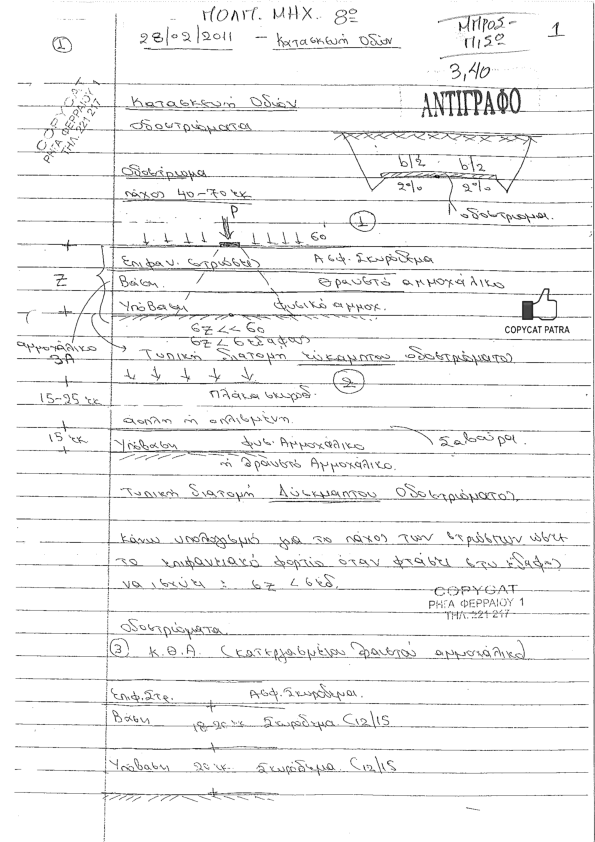 ΠΟΛΠ. ΜΗΧ. 8º
1
28/02/2011 – Κατασκευή Οδών
ΜΠΡΟΣ-
ΠΙΣΩ
1
3,40
COPYCAT
ΡΗΓΑ ΦΕΡΡΑΙΟΥ 1
ΤΗΛ. 221 217
ΑΝΤΙΓΡΑΦΟ
Κατασκευή Οδών
Οδοστρώματα
b/2 b/2
2% 2%
οδόστρωμα.
Οδόστρωμα
πάχος 40-70 εκ
P
1
σο
Επιφαν. στρώσεις Ασφ. Σκυρόδεμα
Z
Βάση θραυστό αμμοχάλικο
Υπόβαση φυσικό αμμοχ.
COPYCAT PATRA
σz << σο
σz < σεδάφους
αμμοχάλικο
3Α
Τυπική διατομή εύκαμπτου οδοστρώματος
2
15-25 εκ
πλάκα σκυροδ.
άοπλη ή οπλισμένη.
15 εκ
Υπόβαση φυσ. Αμμοχάλικο
Σαβούρα.
ή θραυστό Αμμοχάλικο.
Τυπική διατομή Δύσκαμπτου Οδοστρώματος.
Κάνω υπολογισμό για το πάχος των στρώσεων ώστε
το επιφανειακό φορτίο όταν φτάσει στο έδαφος
να ισχύει : σz < σεδ.
COPYCAT
ΡΗΓΑ ΦΕΡΡΑΙΟΥ 1
ΤΗΛ. 221 217
Οδοστρώματα.
3 Κ.Θ.Α. (κατεργασμένου θραυστού αμμοχάλικο)
Επιφ. Στρ. Ασφ. Σκυρόδεμα.
Βάση 18-20 εκ Σκυρόδεμα C12/15
Υπόβαση 20 εκ. Σκυρόδεμα C12/15